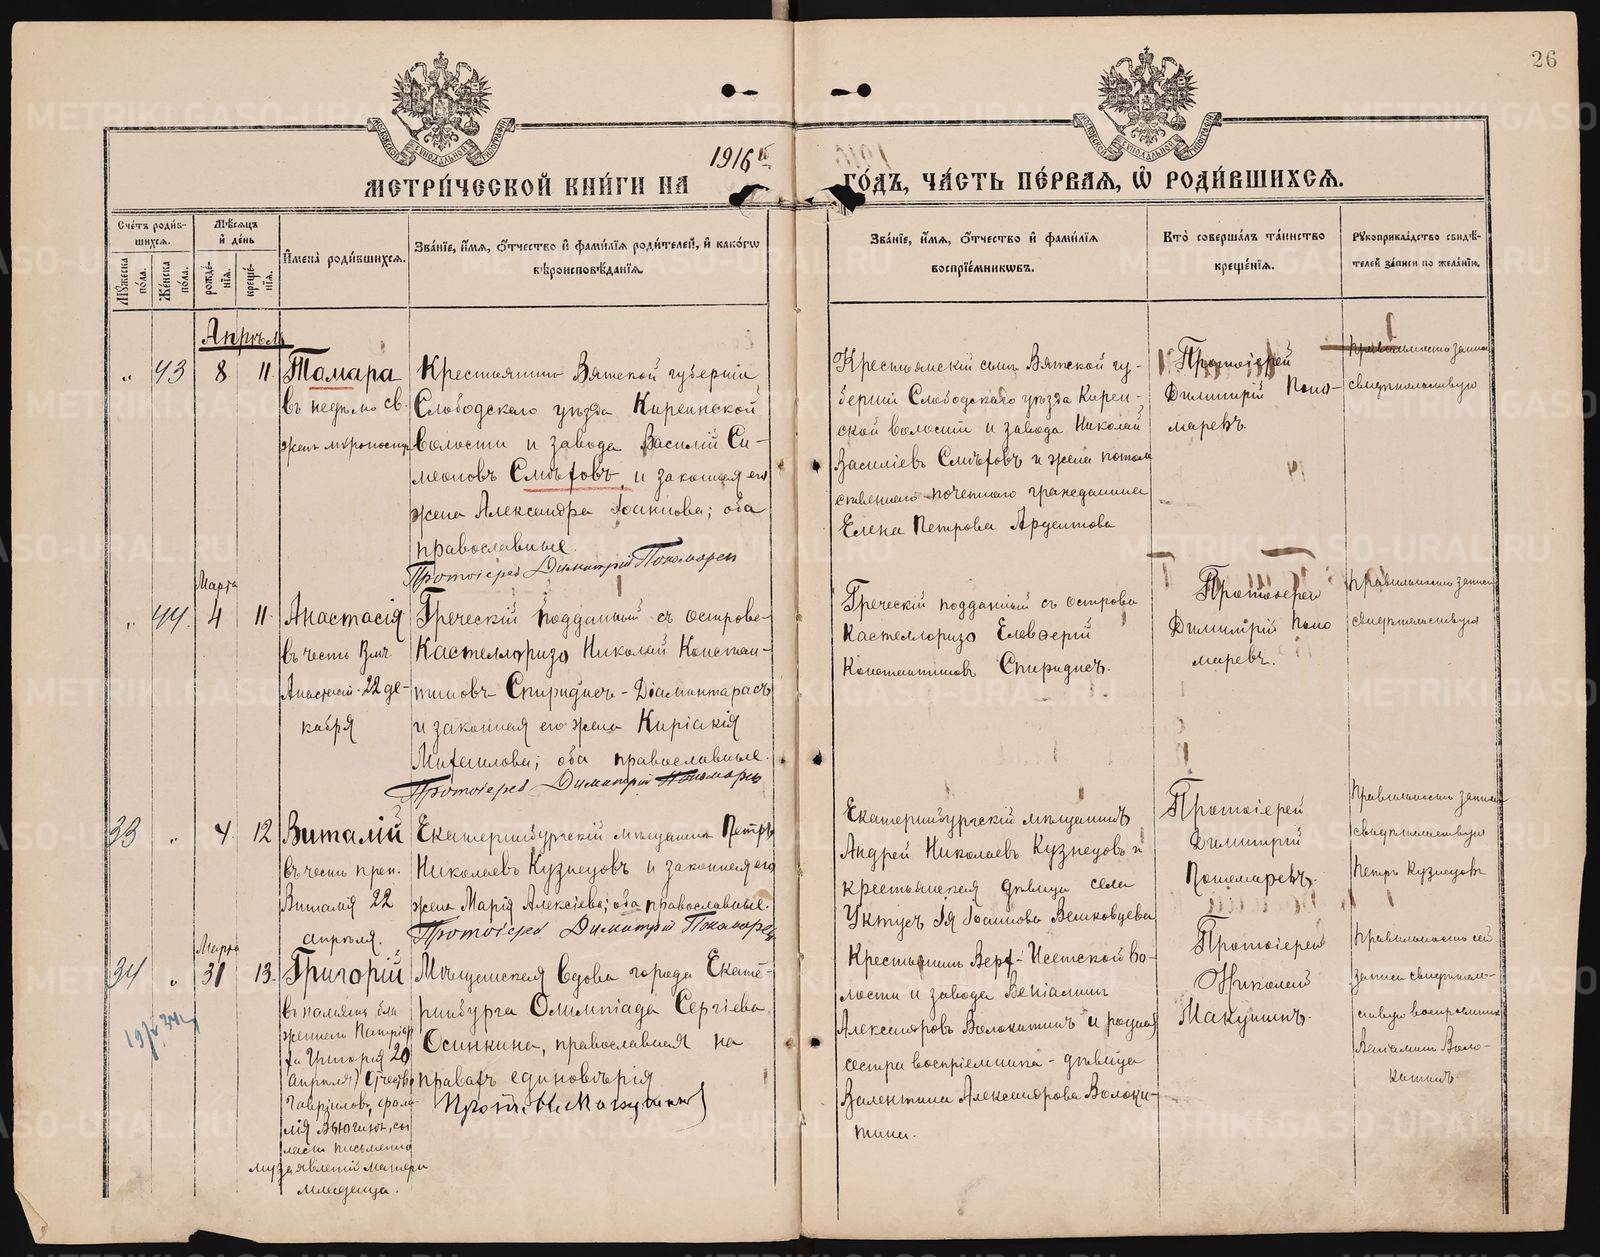 26
1916 й
МЕТРИ́ЧЕСКОЙ КНИ́ГИ НА
ГО́ДЪ, ЧА́СТЬ ПЕ́РВАѦ, Ѿ РОДИ́ВШИХСѦ.
Сче́тъ роди́в-
шихсѧ.
Мꙋ́жеска по́ла.
Же́нска по́ла.
Мѣ́сѧцъ
и҆ де́нь
рожде́-
нїѧ.
креще́-
нїѧ.
И҆мена̀ роди́вшихсѧ.
Зва́нїе, и҆́мѧ, ѻ҆́тчество и҆ фами́лїѧ роди́телей, и҆ како́гѡ
вѣроисповѣ́данїѧ.
Зва́нїе, и҆́мѧ, ѻ҆́тчество и҆ фами́лїѧ
воспрїе́мникѡвъ.
Кто̀ соверша́лъ та́инство
креще́нїѧ.
Рꙋкоприкла́дство свидѣ́-
телей за́писи по жела́нїю.
Апрѣль
„ 43 8 11 Тамара
въ недѣлю св.
женъ мѵроносицъ
Крестьянинъ Вятской губерніи
Слободскаго уѣзда Кирсинской
волости и завода Василій Си-
меоновъ Смѣховъ, и законная его
жена Александра Іоаннова; оба
православные.
Протоіерей Димитрій Пономаревъ
Крестьянскій сынъ Вятской гу-
берніи Слободскаго уѣзда Кирсин-
ской волости и завода Николай
Василіевъ Смѣховъ и жена потом
ственнаго почетнаго гражданина
Елена Петрова Ардентова
Протоіерей
Димитрій Поно-
маревъ.
Правильность записи
свидѣтельствую
Марта
„ 44 4 11 Анастасія
въ честь Влмч.
Анастасіи 22 де-
кабря
Греческій подданный съ острова
Кастеллоризо Николай Констан-
тиновъ Спиридисъ-Діамантарасъ
и законная его жена Киріакія
Михаилова; оба православные.
Протоіерей Димитрій Пономаревъ
Греческій подданный съ острова
Кастеллоризо Елевѳерій
Константиновъ Спиридисъ.
Протоіерей
Димитрій Поно
маревъ.
Правильность записи
свидѣтельствую
33 „ 4 12 Виталій
въ честь преп.
Виталія 22
апрѣля.
Екатеринбургскій мѣщанинъ Петръ
Николаевъ Кузнецовъ и законная его
жена Марія Алексіева; оба православные.
Протоіерей Димитрій Пономаревъ
Екатеринбургскій мѣщанинъ
Андрей Николаевъ Кузнецовъ и
крестьянская дѣвица села
Уктусъ Ія Іоаннова
Протоіерей
Димитрій
Пономаревъ.
Правильность записи
свидѣтельствую
Петръ Кузнецовъ
Марта
34 „ 31 13 Григорій
въ память бла
женнаго Патріар
ха Григорія 20
апрѣля) Отчество
Гавріиловъ, фами
лія согласно
письменно
му заявленію матери
младенца.
Мѣщанская вдова города Екате-
ринбурга Олимпіада Сергіева
Осинкина, православная на
правахъ единовѣрія
Прот. Н. Макушинъ
Крестьянинъ Верх-Исетской во-
лости и завода Веніаминъ
Александровъ Волокитинъ и родная
сестра воспріемника - дѣвица
Валентина Александрова Волоки-
тина.
Протоіерей
Николай
Макушинъ.
Правильность сей
записи свидѣтель-
ствую воспріемникъ
Веніаминъ Воло-
китинъ
METRIKI.GASO-URAL.RU